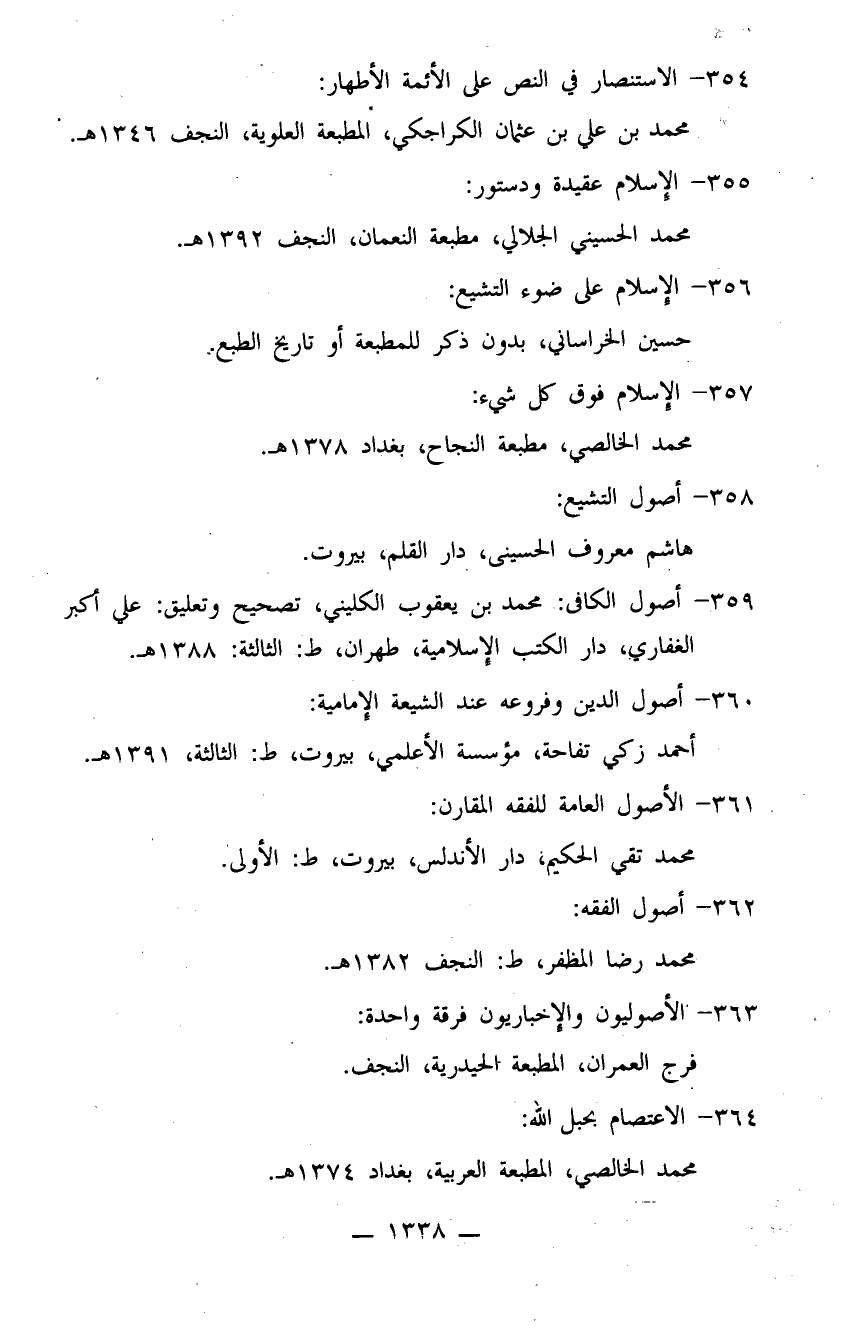 ٣٥٤– الاستنصار في النص على الأئمة الأطهار:
محمد بن علي بن عثمان الكراجكي، المطبعة العلوية، النجف ١٣٤٦هـ.
٣٥٥– الإسلام عقيدة ودستور:
محمد الحسيني الجلالي، مطبعة النعمان، النجف ١٣٩٢هـ.
٣٥٦– الإسلام على ضوء التشيع:
حسين الخراساني، بدون ذكر للمطبعة أو تاريخ الطبع.
٣٥٧– الإسلام فوق كل شيء:
محمد الخالصي، مطبعة النجاح، بغداد ١٣٧٨هـ.
٣٥٨– أصول التشيع:
هاشم معروف الحسينى، دار القلم، بيروت.
٣٥٩– أصول الكافى: محمد بن يعقوب الكليني، تصحيح وتعليق: علي أكبر
الغفاري، دار الكتب الإسلامية، طهران، ط: الثالثة: ١٣٨٨هـ.
٣٦٠– أصول الدين وفروعه عند الشيعة الإمامية:
أحمد زكي تفاحة، مؤسسة الأعلمي، بيروت، ط: الثالثة، ١٣٩١هـ.
٣٦١– الأصول العامة للفقه المقارن:
محمد تقي الحكيم، دار الأندلس، بيروت، ط: الأولى.
٣٦٢– أصول الفقه:
محمد رضا المظفر، ط: النجف ١٣٨٢هـ.
٣٦٣– الأصوليون والإخباريون فرقة واحدة:
فرج العمران، المطبعة الحيدرية، النجف.
٣٦٤– الاعتصام بحبل الله:
محمد الخالصي، المطبعة العربية، بغداد ١٣٧٤هـ.
— ١٣٣٨ —